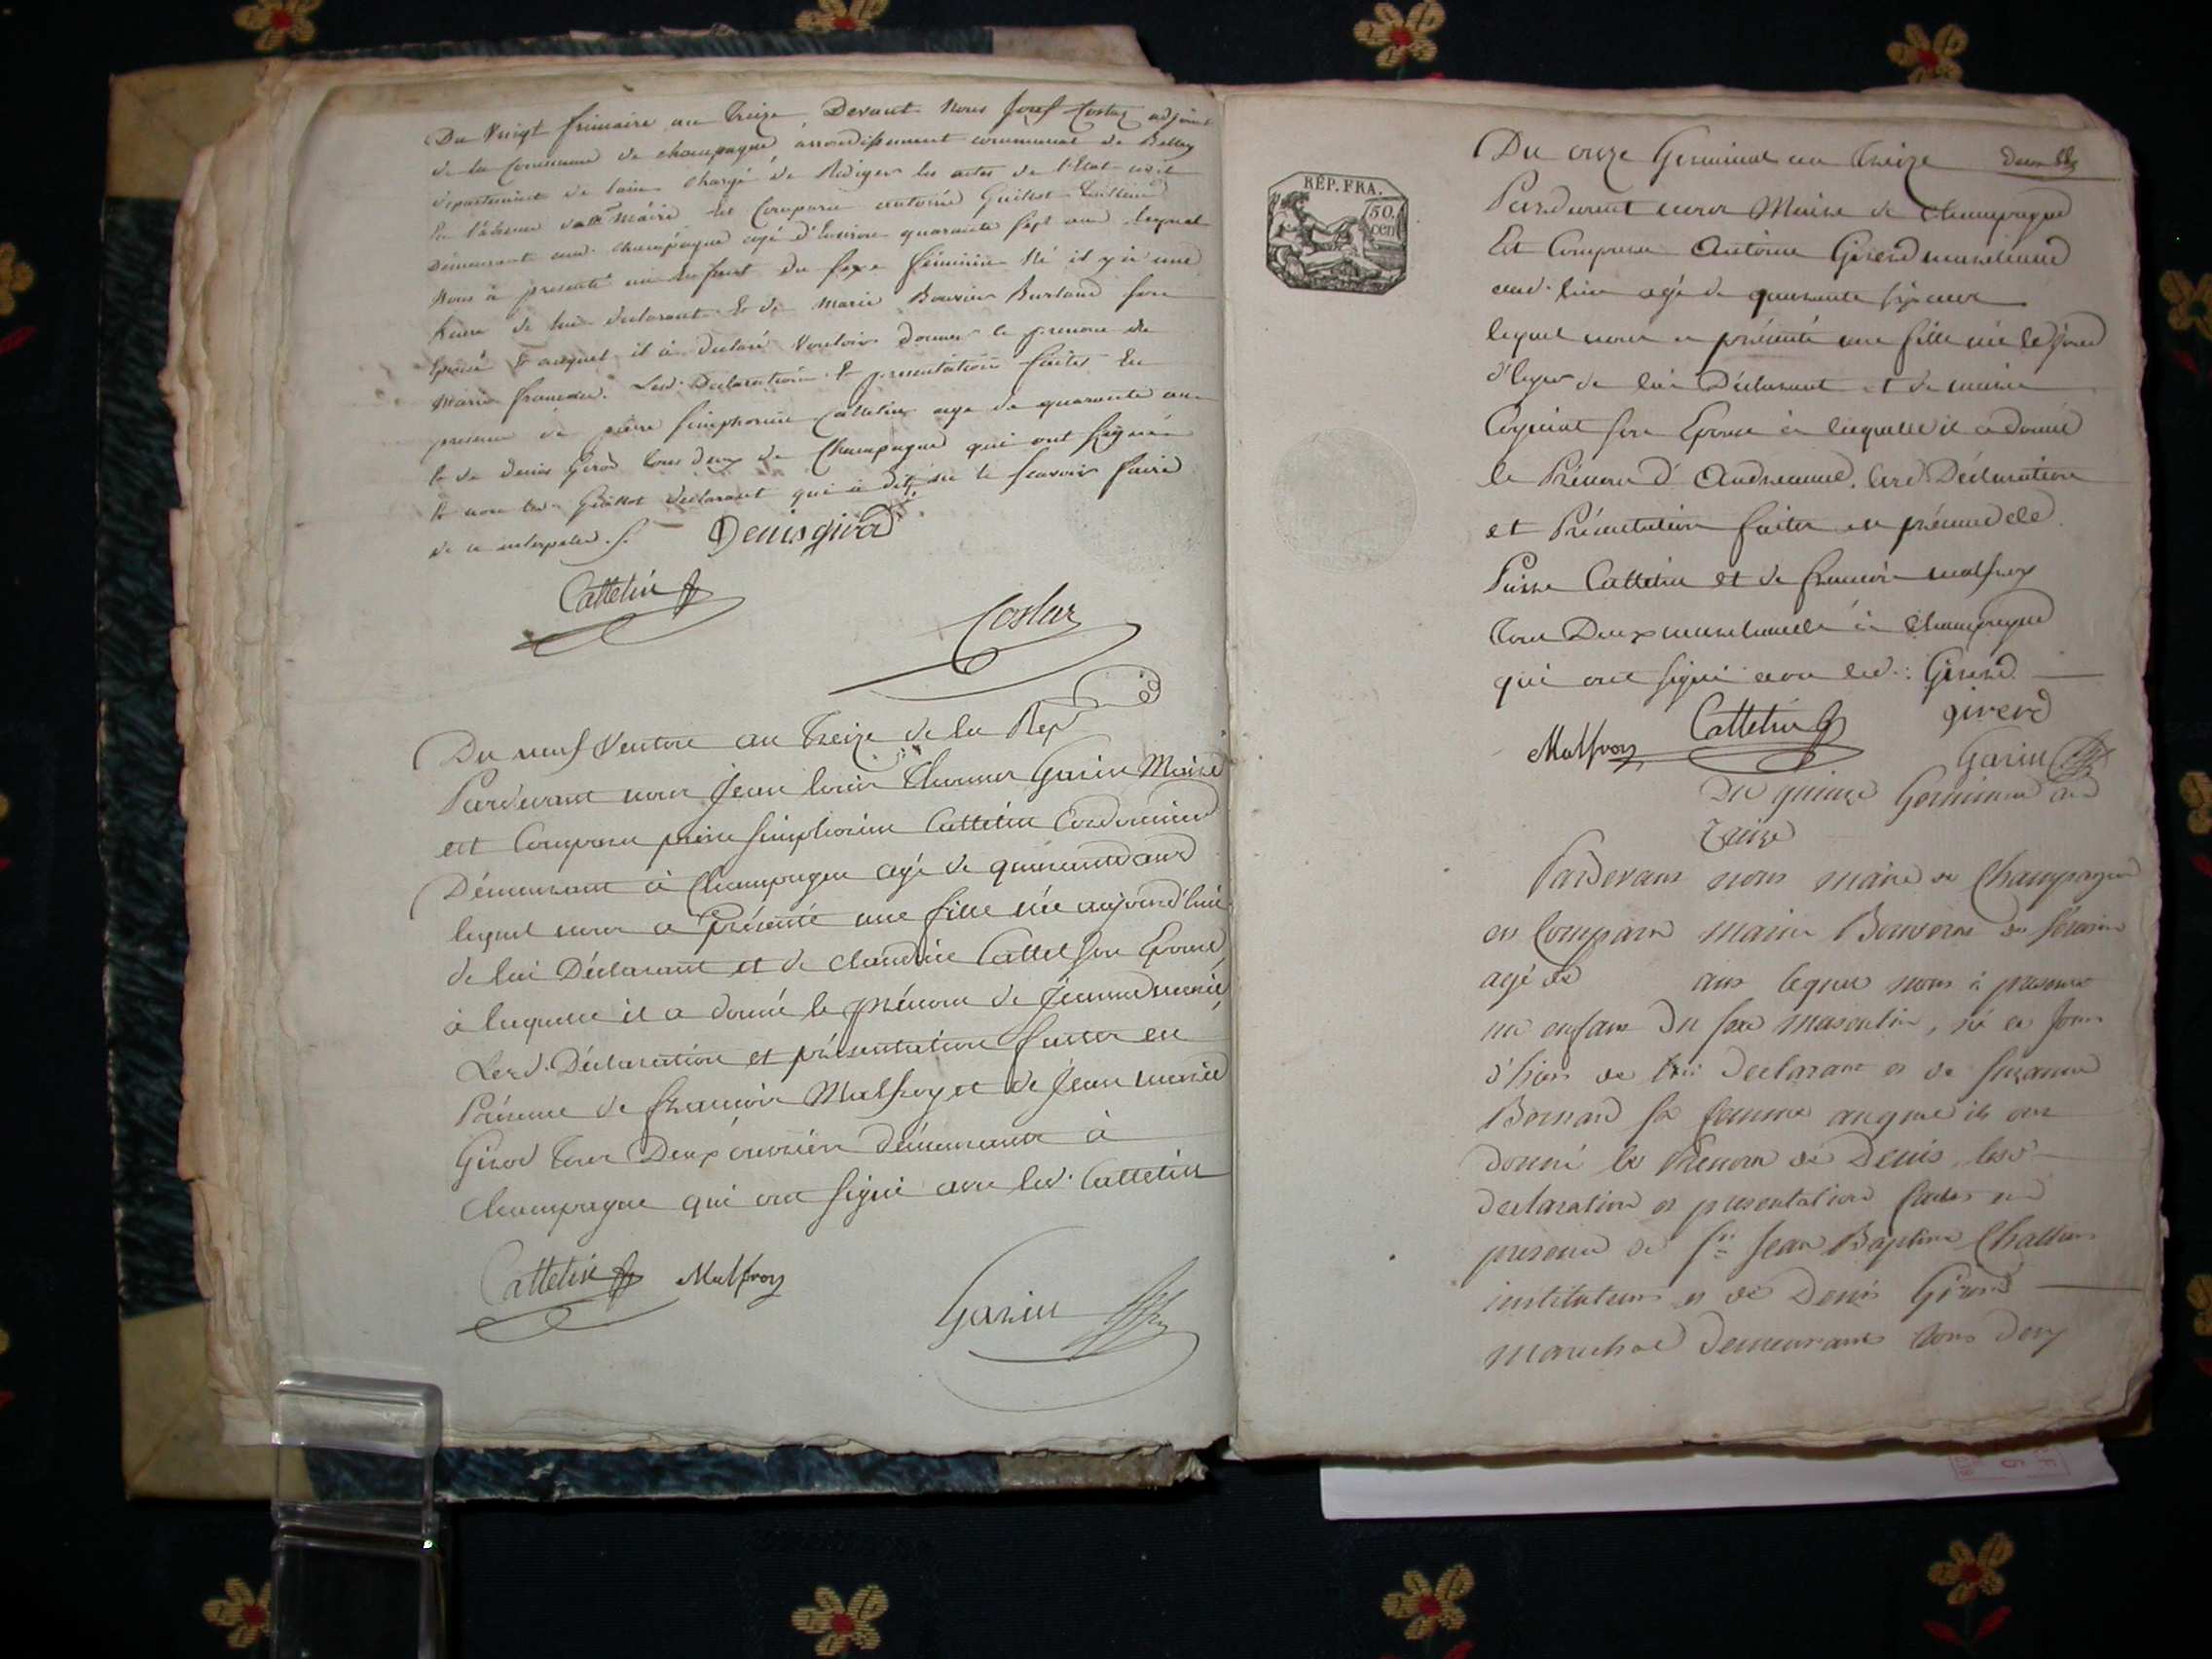 Du vingt frimaire an treize, Devant nous Josef Costaz adjoint
de la Commune de champagne, arrondissement communal de Belley
département de lain chargé de Rediger les actes de l'Etat civil
En l'absence du Maire Est Comparu antoine Guillot
demeurant aud. champagne agé d'Environ quarante sept ans lequel
Nous à presenté un Enfant du sexe féminin Né il y à une
heure de lui declarant & de Marie Bouvier Burland son
Epouse & auquel il à declaré Vouloir donner le prenom de
Marie francoise. Lesd. Declaration & presentation faites En
presence de pierre simphorien Cattelin age de quarante ans
& de denis Girod tous deux de Champagne qui ont signés
& non led. Guillot declarant qui à dit ne le scavoir faire
de ce interpelé. /.
Denis girod
Cattelin
Costaz
Du neuf Ventose an treize de la Rep
Pardevant nous Jean Louis Garin Maire
est Comparu pierre simphorien Cattelin Cordonnier
Démeurant à Champagne agé de quarante ans
lequel nous a Présenté une fille née aujourd'hui
de lui Déclarant et de claudine Cattel son Epouse,
à laquelle il a donné le prénom de Jeanne marie,
Lesd. Déclaration et présentation faites en
Présence de francois Malfroy et de Jean marie
Girod tous Deux démeurants à
Champagne qui ont signé avec led. Cattelin
Cattelin Malfroy
Garin
Du onze Germinal an treize
RÉP. FRA.
50.
cen
Pardevant nous Maire de Champagne
Est Comparu Antoine Girerd
aud. lieu agé de quarante six ans
lequel nous a présenté une fille née le jour
d'hyer de lui Déclarant et de marie
son Epouse à laquelle il a donné
le Prénom d'Andréanne. lesd. Déclaration
et Présentation faites en présence de
Pierre Cattelin et de francois malfroy
tous Deux à Champagne
qui ont signé avec led. : Girerd
Malfroy Cattelin girerd
Garin
Du quinze Germinal an
treize
Pardevant nous maire de Champagne
est Comparu
agé de ans lequel nous à presenté
un enfant du sexe masculin, né ce jour
d'hier de lui declarant et de suzanne
Bernard sa femme auquel ils ont
donné le Prenom de Denis, lesd.
declaration et presentation faites en
presence de sr Jean Baptiste
instituteur et de Denis Girod
marechal demeurants tous deux